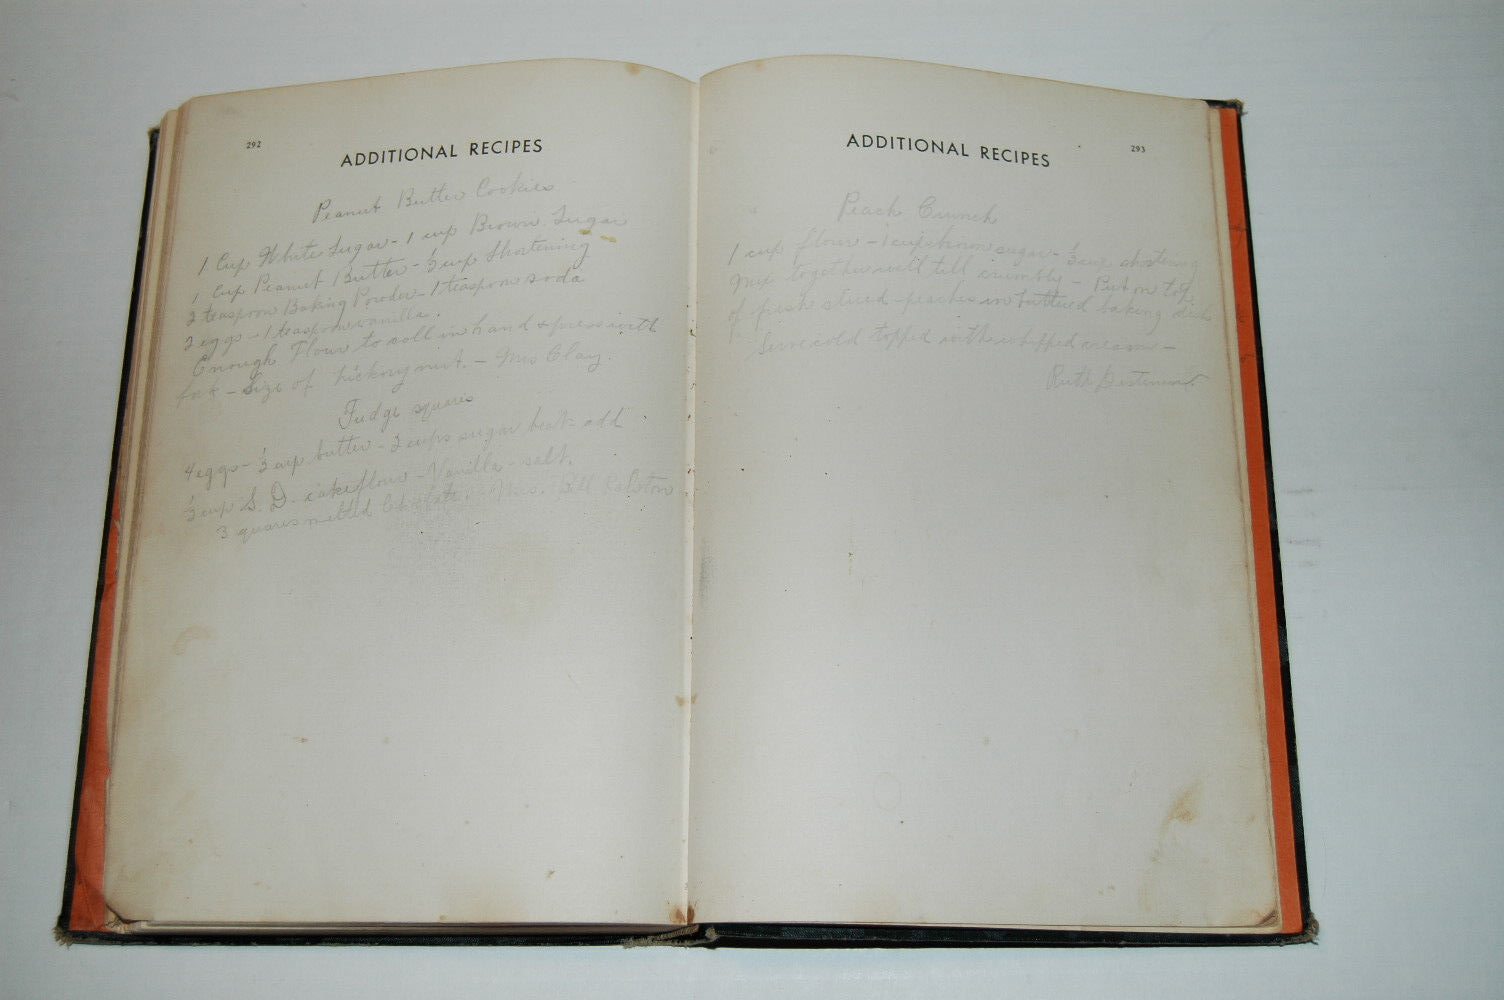 292
ADDITIONAL RECIPES
Peanut Butter Cookies
1 Cup White Sugar - 1 cup Brown Sugar
1 Cup Peanut Butter - ½ cup Shortening
2 teaspoon Baking Powder - 1 teaspoon soda
2 eggs - 1 teaspoon vanilla.
Enough Flour to roll in hand & press with
fork - Size of hickory nut. - Mrs Clay.
Fudge squares
4 eggs - butter - 2 cups sugar beat - add
cup S. D. cake flour - Vanilla - salt.
3 quares melted Mrs. Bill Ralston
ADDITIONAL RECIPES
293
Peach Crunch
1 cup flour - 1 cup brown sugar - ½ cup shortening
Mix together well till crumbly - Put on top
of fresh sliced peaches in buttered baking dish
Serve cold topped with whipped cream -
Ruth